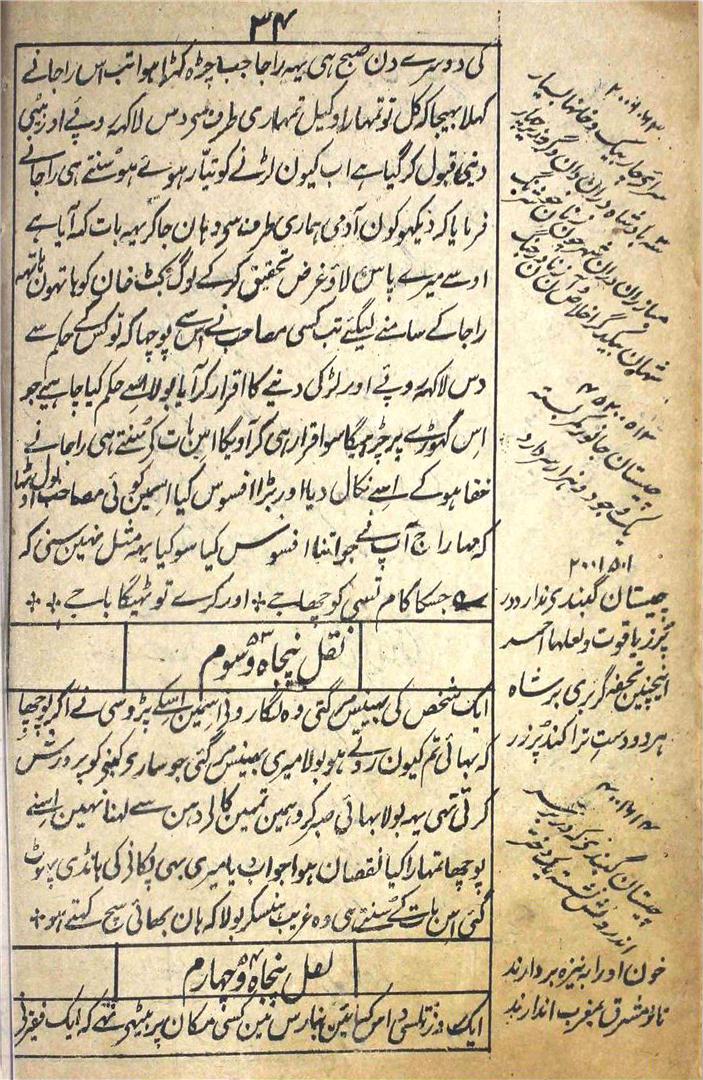 ۳۴
کی دوسرے دن صبح ہی یہہ راجا جب چڑہ کہڑا ہوا تب اس راجانے
کہلا بہیجا کہ کل تو تمہارا وکیل تمہاری طرف سی دس لاکہہ روپئے اور بیٹی
دینی قبول کر گیا ہے اب کیون لڑنے کو تیّار ہوئے ہو سنتے ہی راجانے
فرمایا کہ دیکہو کون آدمی ہماری طرف سی وہان جاکر یہہ بات کہہ آیا ہے
اوسے میرے پاس لاؤ غرض تحقیق کرکے لوگ بکٹ خان کو ہاتہون ہاتہہ
راجا کے سامنے لیگئے تب کسی مصاحب نے اس سے پوچہا کہ تو کس کے حکم سے
دس لاکہہ روپئے اور لڑکی دینے کا اقرار کر آیا بولا اسے حکم کیا چاہیے جو
اس گہوڑے پر چڑہیگا سو اقرار ہی کر آویگا اس بات کے سنتے ہی راجانے
خفا ہوکے اسے نکال دیا اور بڑا افسوس کیا اسمین کوئی مصاحب بول اوٹہا
کہ مہاراج آپ نے جو اتنا افسوس کیا سو کیا یہہ مثل نہین سنی کہ
جسکا کام تسی کو چہاجے + اور کرے تو ٹہینگا باجے + +
نقل پنجاہ و سوم ۵۳
ایک شخص کی بہینس مر گئی وہ لگا رونے اسمین اسکے پڑوسی نے آکر پوچہا
کہ بہائی تم کیون روتے ہو بولا میری بہینس مر گئی جو ساری کنبے کو پرورش
کرتی تہی یہہ بولا بہائی صبر کرو ہمین تمہین کالے دہن سے لہنا نہین اسنے
پوچہا تمہارا کیا نقصان ہوا جواب دیا میری بہی پکانے کی ہانڈی پہوٹ
گئی اس بات کے سنتے ہی وہ غریب ہنسکر بولا کہ ہان بہائی سچ کہتے ہو +
نقل پنجاہ و چہارم ۵۴
ایک روز تلسی داس گسائین بنارس مین کسی مکان پر بیٹہے تہے کہ ایک فقیر نے
چیستان جانور
یک وجود دو هزار سر دارد
۲۰۰۱۵۰۱
چیستان گنبدی ندارد در
پُر ز یاقوت و لعلها احمر
اینچنین تحفه گر بری بر شاه
هر دو دست ترا کند پُر زر
چیستان گنبدی
خون او را به نیزه بردارند
تا ز مشرق بمغرب اندازند